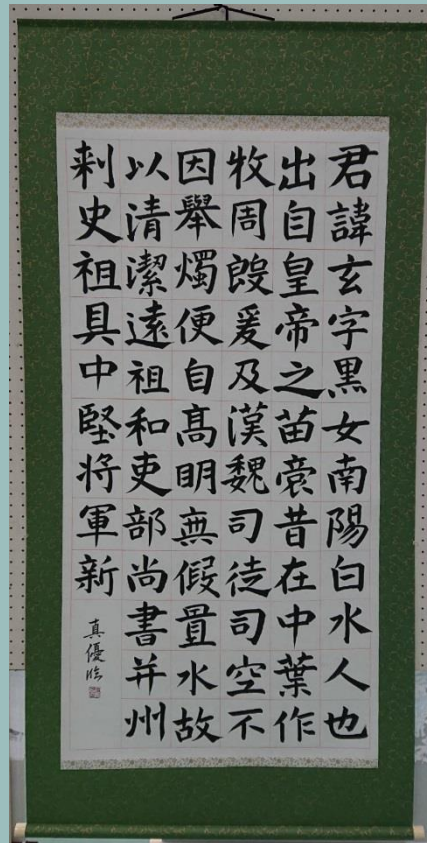 君諱玄字黒女南陽白水人也
出自皇帝之苗裔昔在中葉作
牧周殷爰及漢魏司徒司空不
因舉燭便自髙明無假置水故
以清潔遠祖和吏部尚書并州
刾史祖具中堅将軍新
真優臨